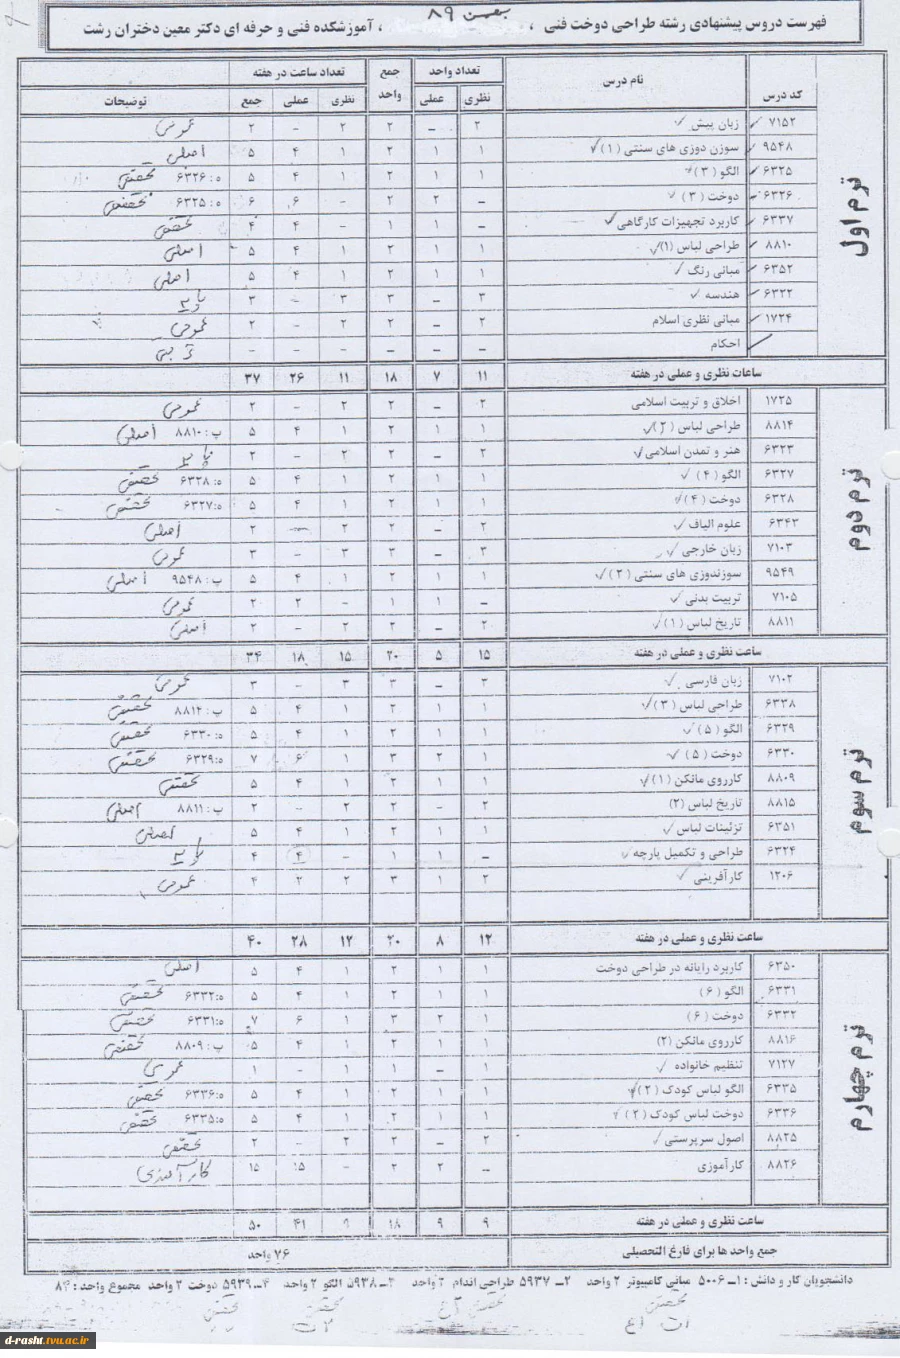 بهمن ۸۹
فهرست دروس پیشنهادی رشته طراحی دوخت فنی ، ، آموزشکده فنی و حرفه ای دکتر معین دختران رشت
کد درس نام درس تعداد واحد جمع واحد تعداد ساعت در هفته توضیحات
نظری عملی نظری عملی جمع
ترم اول
۷۱۵۲ زبان پیش ۲ – ۲ ۲ – ۲ عمومی
۹۵۴۸ سوزن دوزی های سنتی (۱) ۱ ۱ ۲ ۱ ۴ ۵ اصلی
۶۳۲۵ الگو (۳) ۱ ۱ ۲ ۱ ۴ ۵ ه: ۶۳۲۶ تخصصی
۶۳۲۶ دوخت (۳) – ۲ ۲ – ۶ ۶ ه: ۶۳۲۵ تخصصی
۶۳۳۷ کاربرد تجهیزات کارگاهی – ۱ ۱ – ۴ ۴ تخصصی
۸۸۱۰ طراحی لباس (۱) ۱ ۱ ۲ ۱ ۴ ۵ اصلی
۶۳۵۲ مبانی رنگ ۱ ۱ ۲ ۱ ۴ ۵ اصلی
۶۳۲۲ هندسه ۳ – ۳ ۳ – ۳ پایه
۱۷۲۴ مبانی نظری اسلام ۲ – ۲ ۲ – ۲ عمومی
احکام – – – – – –
ساعات نظری و عملی در هفته ۱۱ ۷ ۱۸ ۱۱ ۲۶ ۳۷
ترم دوم
۱۷۲۵ اخلاق و تربیت اسلامی ۲ – ۲ ۲ – ۲ عمومی
۸۸۱۴ طراحی لباس (۲) ۱ ۱ ۲ ۱ ۴ ۵ پ: ۸۸۱۰ اصلی
۶۳۲۳ هنر و تمدن اسلامی ۲ – ۲ ۲ – ۲ پایه
۶۳۲۷ الگو (۴) ۱ ۱ ۲ ۱ ۴ ۵ ه: ۶۳۲۸ تخصصی
۶۳۲۸ دوخت (۴) ۱ ۱ ۲ ۱ ۴ ۵ ه: ۶۳۲۷ تخصصی
۶۳۴۳ علوم الیاف ۲ – ۲ ۲ – ۲ اصلی
۷۱۰۳ زبان خارجی ۳ – ۳ ۳ – ۳ عمومی
۹۵۴۹ سوزندوزی های سنتی (۲) ۱ ۱ ۲ ۱ ۴ ۵ پ: ۹۵۴۸ اصلی
۷۱۰۵ تربیت بدنی – ۱ ۱ – ۲ ۲ عمومی
۸۸۱۱ تاریخ لباس (۱) ۲ – ۲ ۲ – ۲ اصلی
ساعت نظری و عملی در هفته ۱۵ ۵ ۲۰ ۱۵ ۱۸ ۳۴
ترم سوم
۷۱۰۲ زبان فارسی ۳ – ۳ ۳ – ۳ عمومی
۶۳۳۸ طراحی لباس (۳) ۱ ۱ ۲ ۱ ۴ ۵ پ: ۸۸۱۴ تخصصی
۶۳۲۹ الگو (۵) ۱ ۱ ۲ ۱ ۴ ۵ ه: ۶۳۳۰ تخصصی
۶۳۳۰ دوخت (۵) ۱ ۲ ۳ ۱ ۶ ۷ ه: ۶۳۲۹ تخصصی
۸۸۰۹ کارروی مانکن (۱) ۱ ۱ ۲ ۱ ۴ ۵ تخصصی
۸۸۱۵ تاریخ لباس (۲) ۲ – ۲ ۲ – ۲ پ: ۸۸۱۱ اصلی
۶۳۵۱ تزئینات لباس ۱ ۱ ۲ ۱ ۴ ۵ اصلی
۶۳۲۴ طراحی و تکمیل پارچه – ۱ ۱ – ۴ ۴ پایه
۱۲۰۶ کارآفرینی ۲ ۱ ۳ ۲ ۲ ۴ عمومی
ساعت نظری و عملی در هفته ۱۲ ۸ ۲۰ ۱۲ ۲۸ ۴۰
ترم چهارم
۶۳۵۰ کاربرد رایانه در طراحی دوخت ۱ ۱ ۲ ۱ ۴ ۵ اصلی
۶۳۳۱ الگو (۶) ۱ ۱ ۲ ۱ ۴ ۵ ه: ۶۳۳۲ تخصصی
۶۳۳۲ دوخت (۶) ۱ ۲ ۳ ۱ ۶ ۷ ه: ۶۳۳۱ تخصصی
۸۸۱۶ کارروی مانکن (۲) ۱ ۱ ۲ ۱ ۴ ۵ پ: ۸۸۰۹ تخصصی
۷۱۲۷ تنظیم خانواده ۱ – ۱ ۱ – ۱ عمومی
۶۳۳۵ الگو لباس کودک (۲) ۱ ۱ ۲ ۱ ۴ ۵ ه: ۶۳۳۶ تخصصی
۶۳۳۶ دوخت لباس کودک (۲) ۱ ۱ ۲ ۱ ۴ ۵ ه: ۶۳۳۵ تخصصی
۸۸۲۵ اصول سرپرستی ۲ – ۲ ۲ – ۲ تخصصی
۸۸۲۶ کارآموزی – ۲ ۲ – ۱۵ ۱۵ کارآموزی
ساعت نظری و عملی در هفته ۹ ۹ ۱۸ ۹ ۴۱ ۵۰
جمع واحد ها برای فارغ التحصیلی ۷۶ واحد
دانشجویان کار و دانش : ۱ـ ۵۰۰۶ مبانی کامپیوتر ۲ واحد ۲ـ ۵۹۳۷ طراحی اندام ۲ واحد ۳ـ ۵۹۳۸ الگو ۲ واحد ۴ـ ۵۹۳۹ دوخت ۲ واحد مجموع واحد : ۸۴
تخصصی تخصصی تخصصی تخصصی
d-rasht.tvu.ac.ir